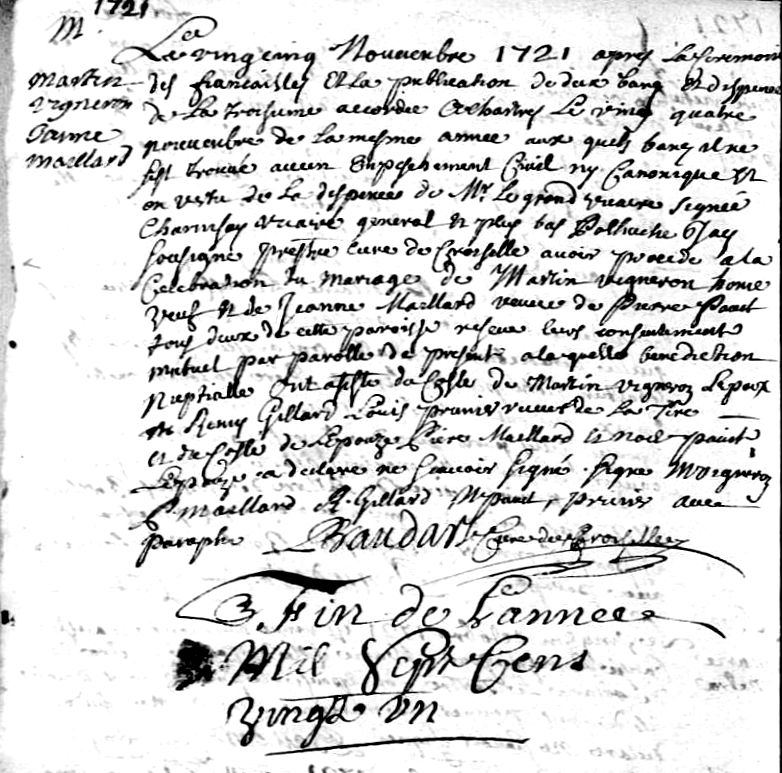 1721
M.
Martin
vigneron
Janne
Maillard
Le vingcinq Nouvenbre 1721 apres la seremonie
des fiancailles Et la publication de deux bans Et dispence
de La troisieme accordee a Chartres Le vingt quatre
nouvenbre de la mesme annee aux quels bans il ne
sest trouvé aucun Empeschement Civil ny Canonique Et
en vertu de la dispence de Mr. Le grand vicaire signée
vicaire general Et plus bas Jay
sousigne prestre curé de Croisille avoir procede a la
Celebration du Mariage de Martin vigneron home
veuf Et de Jeanne Maillard veuve de Pierre
tous deux de cette paroisse reseue leurs consentement
mutuel par parolle de present a la quelle benediction
Nuptialle ont assisté du Costé de Martin vigneron Lepoux
Remy Gillard Louis
et du Costé de Lepouze Pière Maillard et noel
Lepouze a declaré ne scavoir signé. signe M vigneron
P maillard R. Gillard N avec
paraphe Baudar Curé de Croisilles
Fin de Lannee
Mil Sept Cens
vingt un